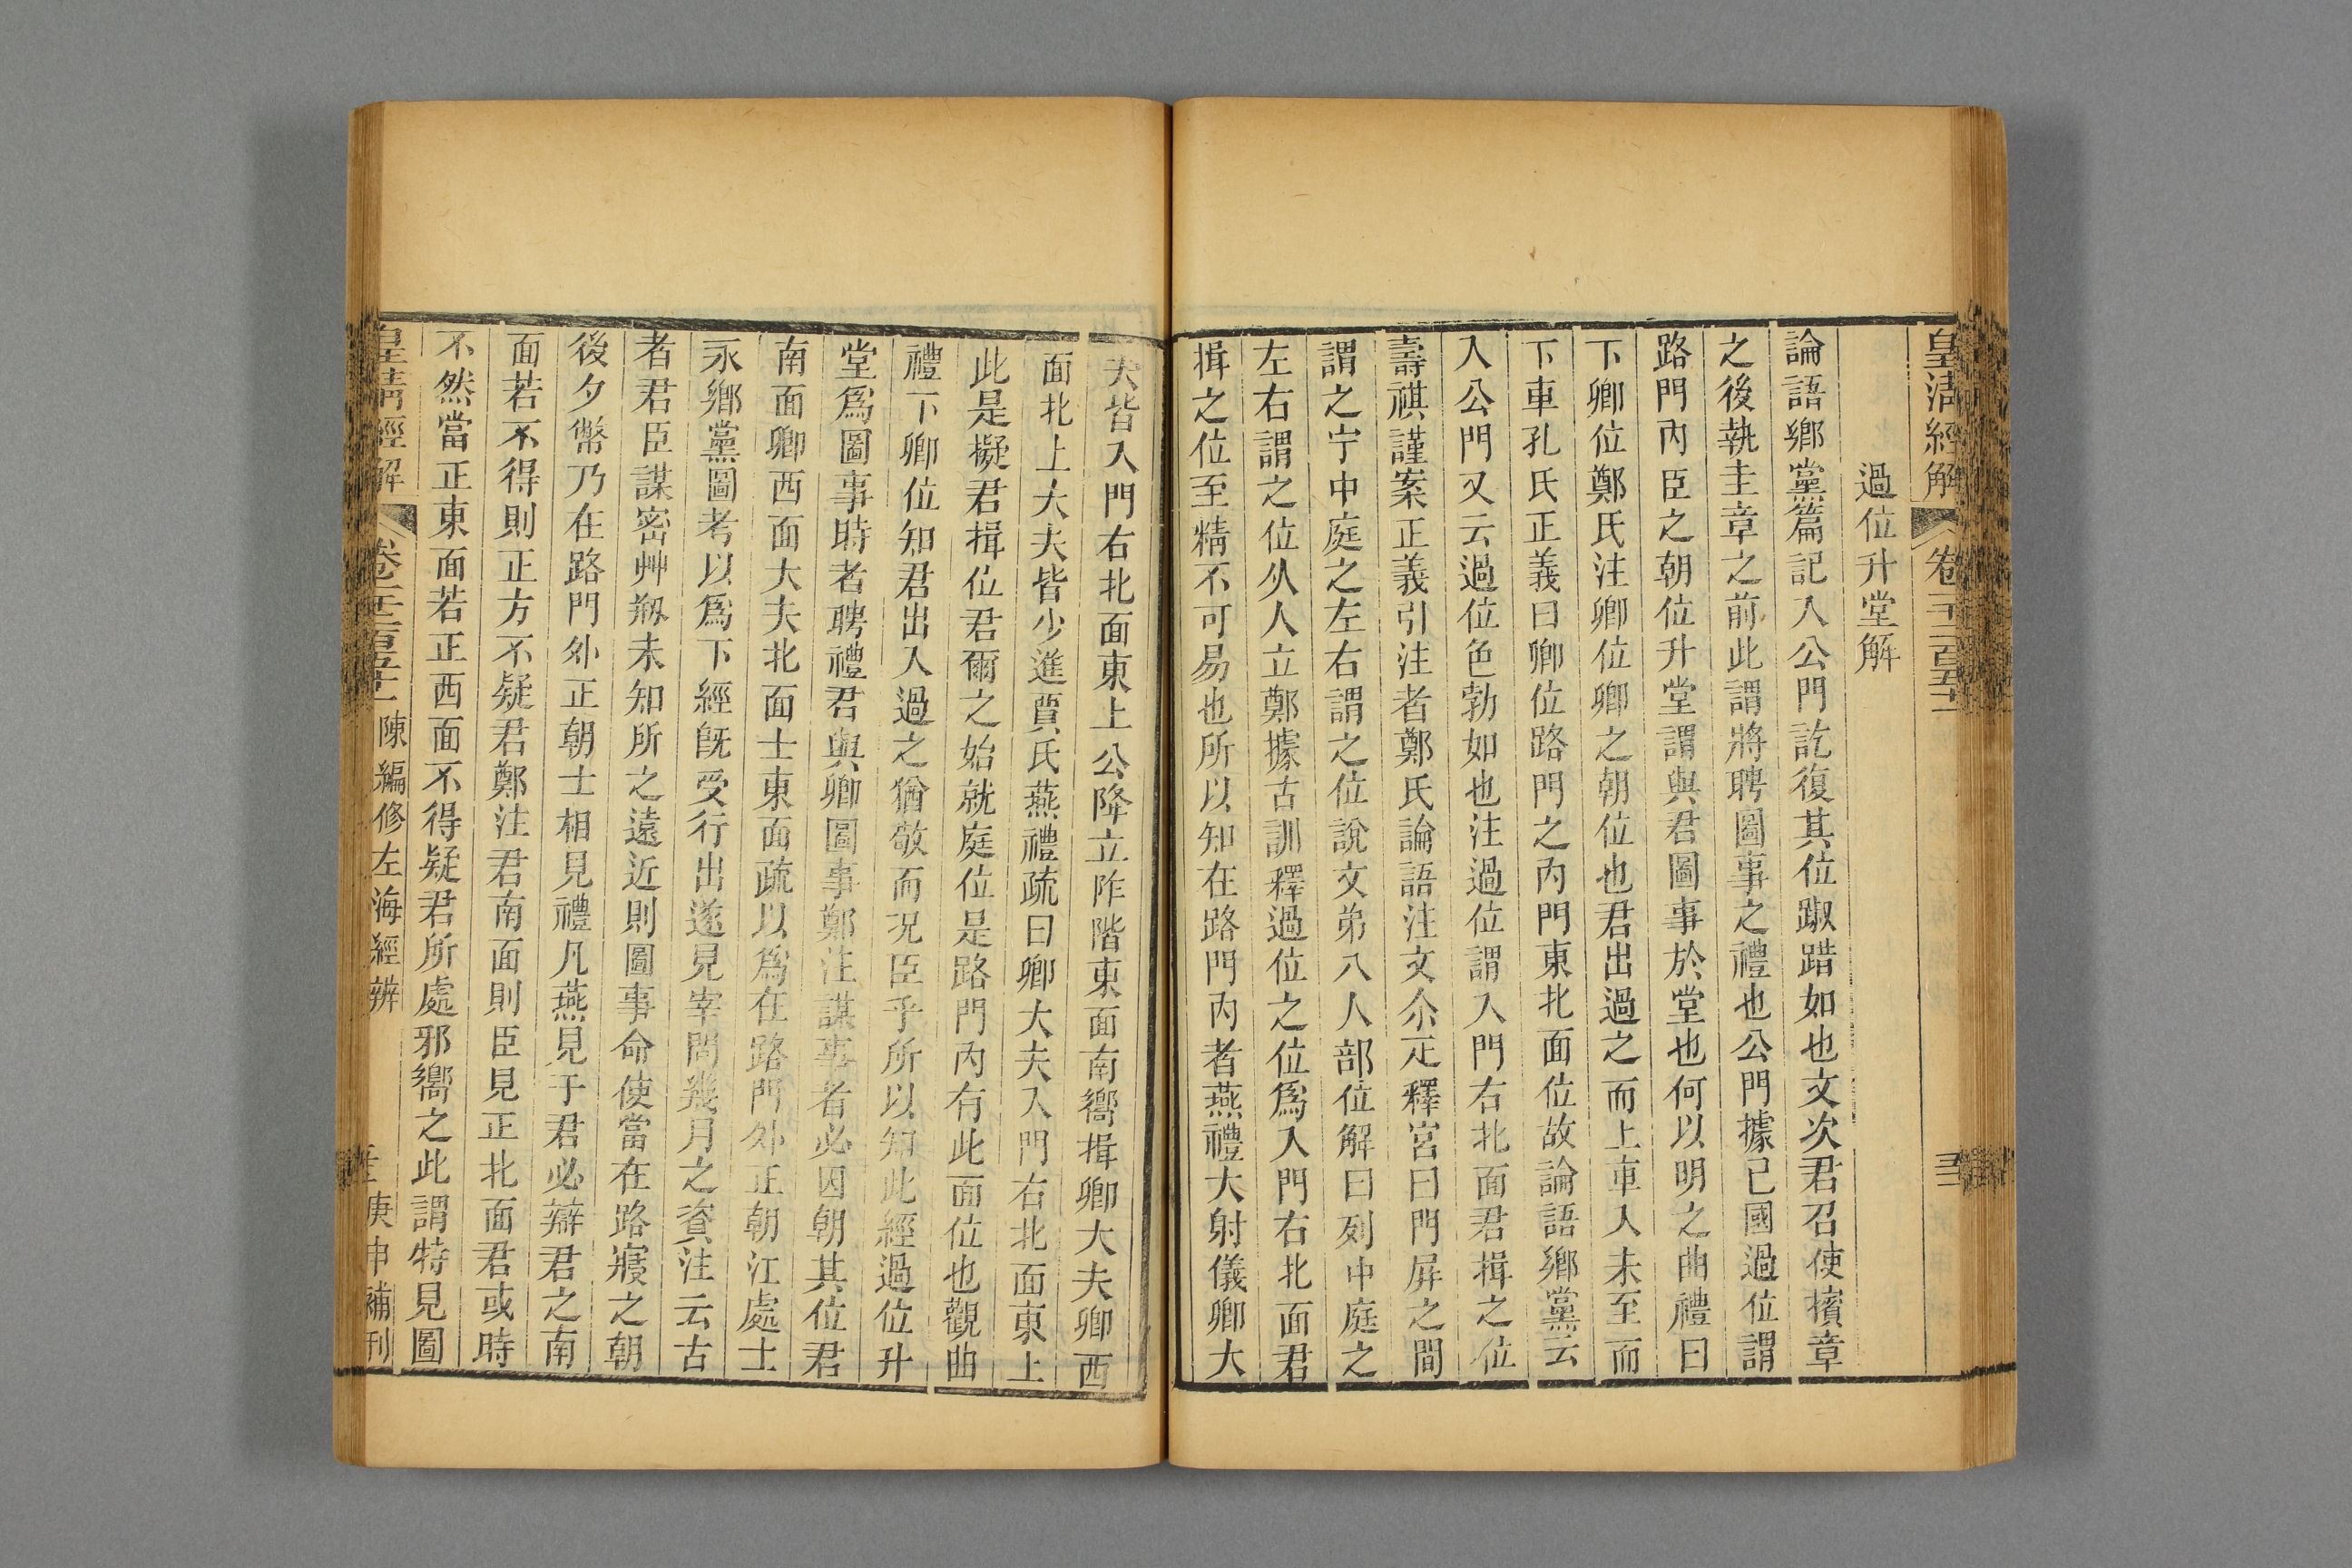 皇清經解 卷千二百五十一 三
過位升堂解
論語鄉黨篇記入公門訖復其位踧踖如也文次君召使擯章
之後執圭章之前此謂將聘圖事之禮也公門據己國過位謂
路門內臣之朝位升堂謂與君圖事於堂也何以明之曲禮曰
下卿位鄭氏注卿位卿之朝位也君出過之而上車入未至而
下車孔氏正義曰卿位路門之內門東北面位故論語鄉黨云
入公門又云過位色勃如也注過位謂入門右北面君揖之位
壽祺謹案正義引注者鄭氏論語注文尒疋釋宮曰門屏之間
謂之宁中庭之左右謂之位說文弟八人部位解曰列中庭之
左右謂之位从人立鄭據古訓釋過位之位爲入門右北面君
揖之位至精不可易也所以知在路門內者燕禮大射儀卿大
夫皆入門右北面東上公降立阼階東面南嚮揖卿大夫卿西
面北上大夫皆少進賈氏燕禮疏曰卿大夫入門右北面東上
此是擬君揖位君爾之始就庭位是路門內有此面位也觀曲
禮下卿位知君出入過之猶敬而況臣乎所以知此經過位升
堂爲圖事時者聘禮君與卿圖事鄭注謀事者必因朝其位君
南面卿西面大夫北面士東面疏以爲在路門外正朝江處士
永鄉黨圖考以爲下經既受行出遂見宰問幾月之資注云古
者君臣謀密艸剏未知所之遠近則圖事命使當在路寢之朝
後夕幣乃在路門外正朝士相見禮凡燕見于君必辯君之南
面若不得則正方不疑君鄭注君南面則臣見正北面君或時
不然當正東面若正西面不得疑君所處邪嚮之此謂特見圖
皇清經解 卷千二百五十一 陳編修左海經辨 三 庚申補刊